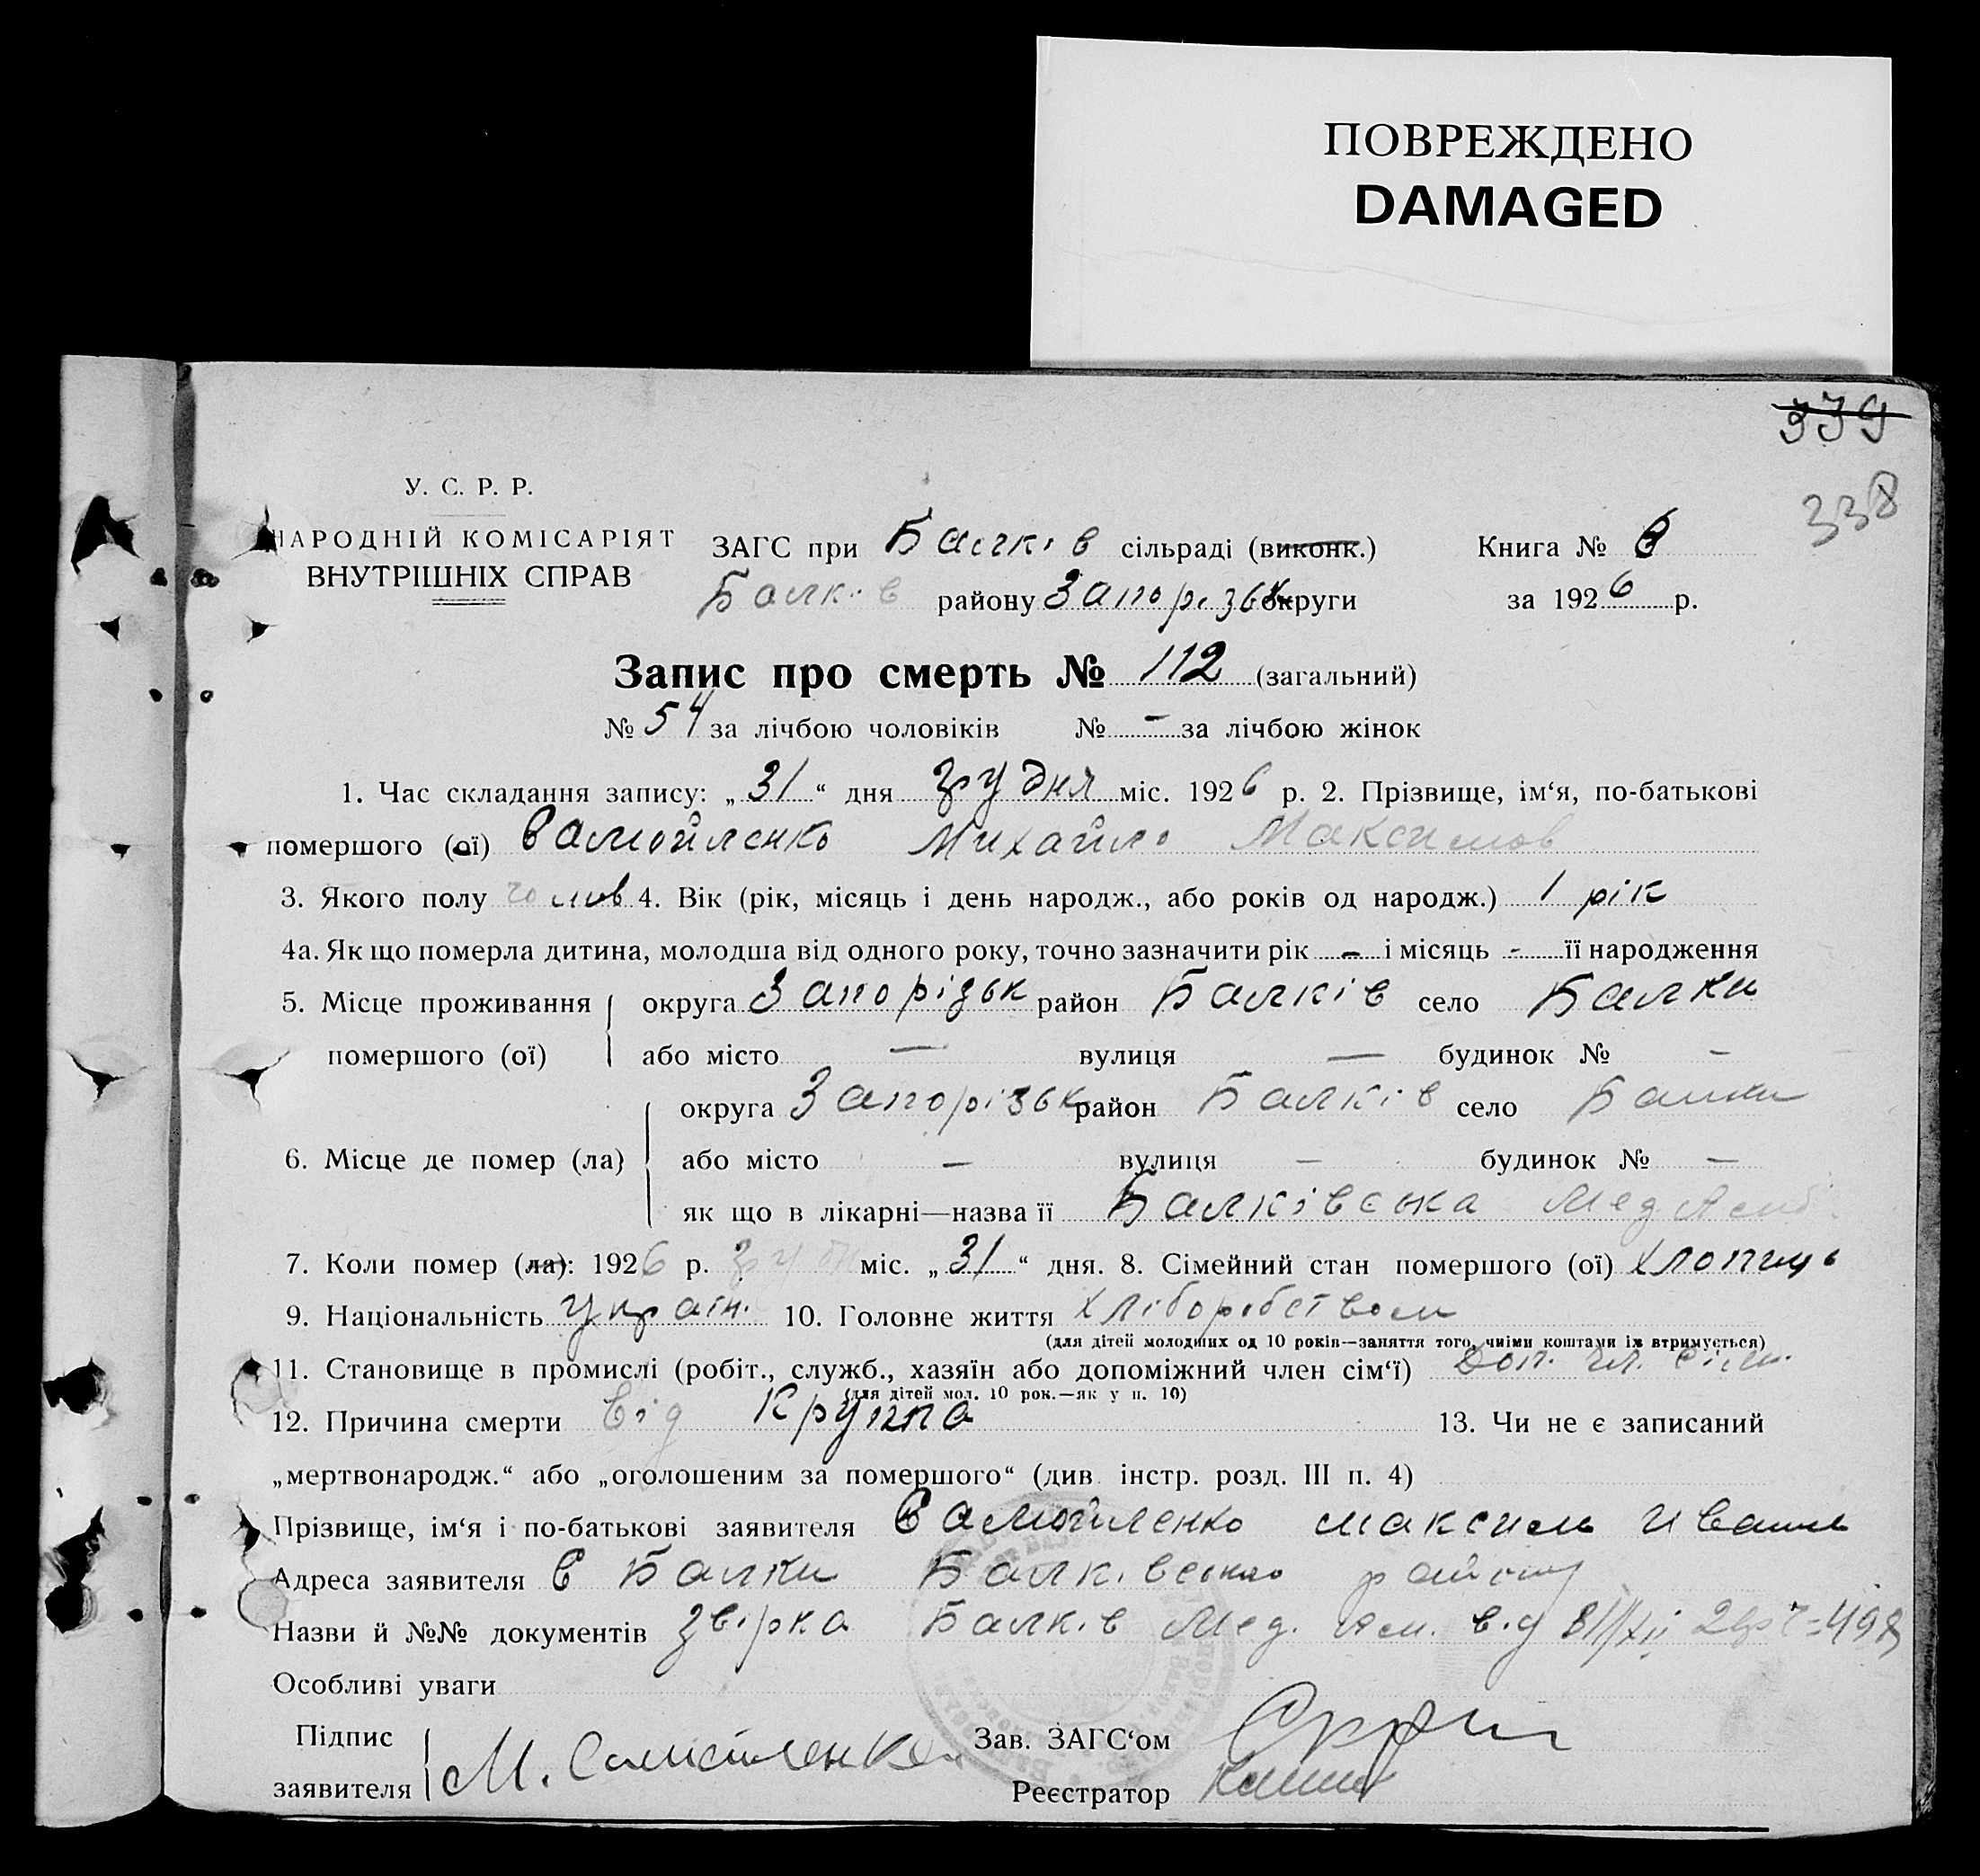 ПОВРЕЖДЕНО
DAMAGED
339
338
У. С. Р. Р.
НАРОДНІЙ КОМІСАРІЯТ
ВНУТРІШНІХ СПРАВ
ЗАГС при Балків сільраді (виконк.) Книга №
Балків району Запорізьк округи за 1926 р.
Запис про смерть № 112 (загальний)
№ 54 за лічбою чоловіків № - за лічбою жінок
1. Час складання запису: „31“ дня грудня міс. 1926 р. 2. Прізвище, ім‘я, по-батькові
помершого (ої) Самойленко Михайло Максимов
3. Якого полу чолов 4. Вік (рік, місяць і день народж., або років од народж.) 1 рік
4а. Як що померла дитина, молодша від одного року, точно зазначити рік - і місяць - її народження
5. Місце проживання округа Запорізьк район Балків село Балки
помершого (ої) або місто — вулиця — будинок № -
округа Запорізьк район Балків село Балки
6. Місце де помер (ла) або місто — вулиця — будинок № —
як що в лікарні—назва її Балківська Мед
7. Коли помер (ла): 1926 р. грудн міс. „31“ дня. 8. Сімейний стан помершого (ої) хлопчик
9. Національність україн. 10. Головне життя хліборобством
(для дітей молодших од 10 років—заняття того, чиїми коштами їх втримується)
11. Становище в промислі (робіт., служб., хазяїн або допоміжний член сім‘ї) Доп. чл. сім.
(для дітей мол. 10 рок.—як у п. 10)
12. Причина смерти від Крупа 13. Чи не є записаний
„мертвонародж.“ або „оголошеним за помершого“ (див. інстр. розд. III п. 4)
Прізвище, ім‘я і по-батькові заявителя Самойленко Максим Иванов
Адреса заявителя С Балки Балківсько району
Назви й №№ документів звірка Балків Мед. від 31/XII 498
Особливі уваги
Підпис Зав. ЗАГС‘ом
заявителя М. Самойленко Реєстратор